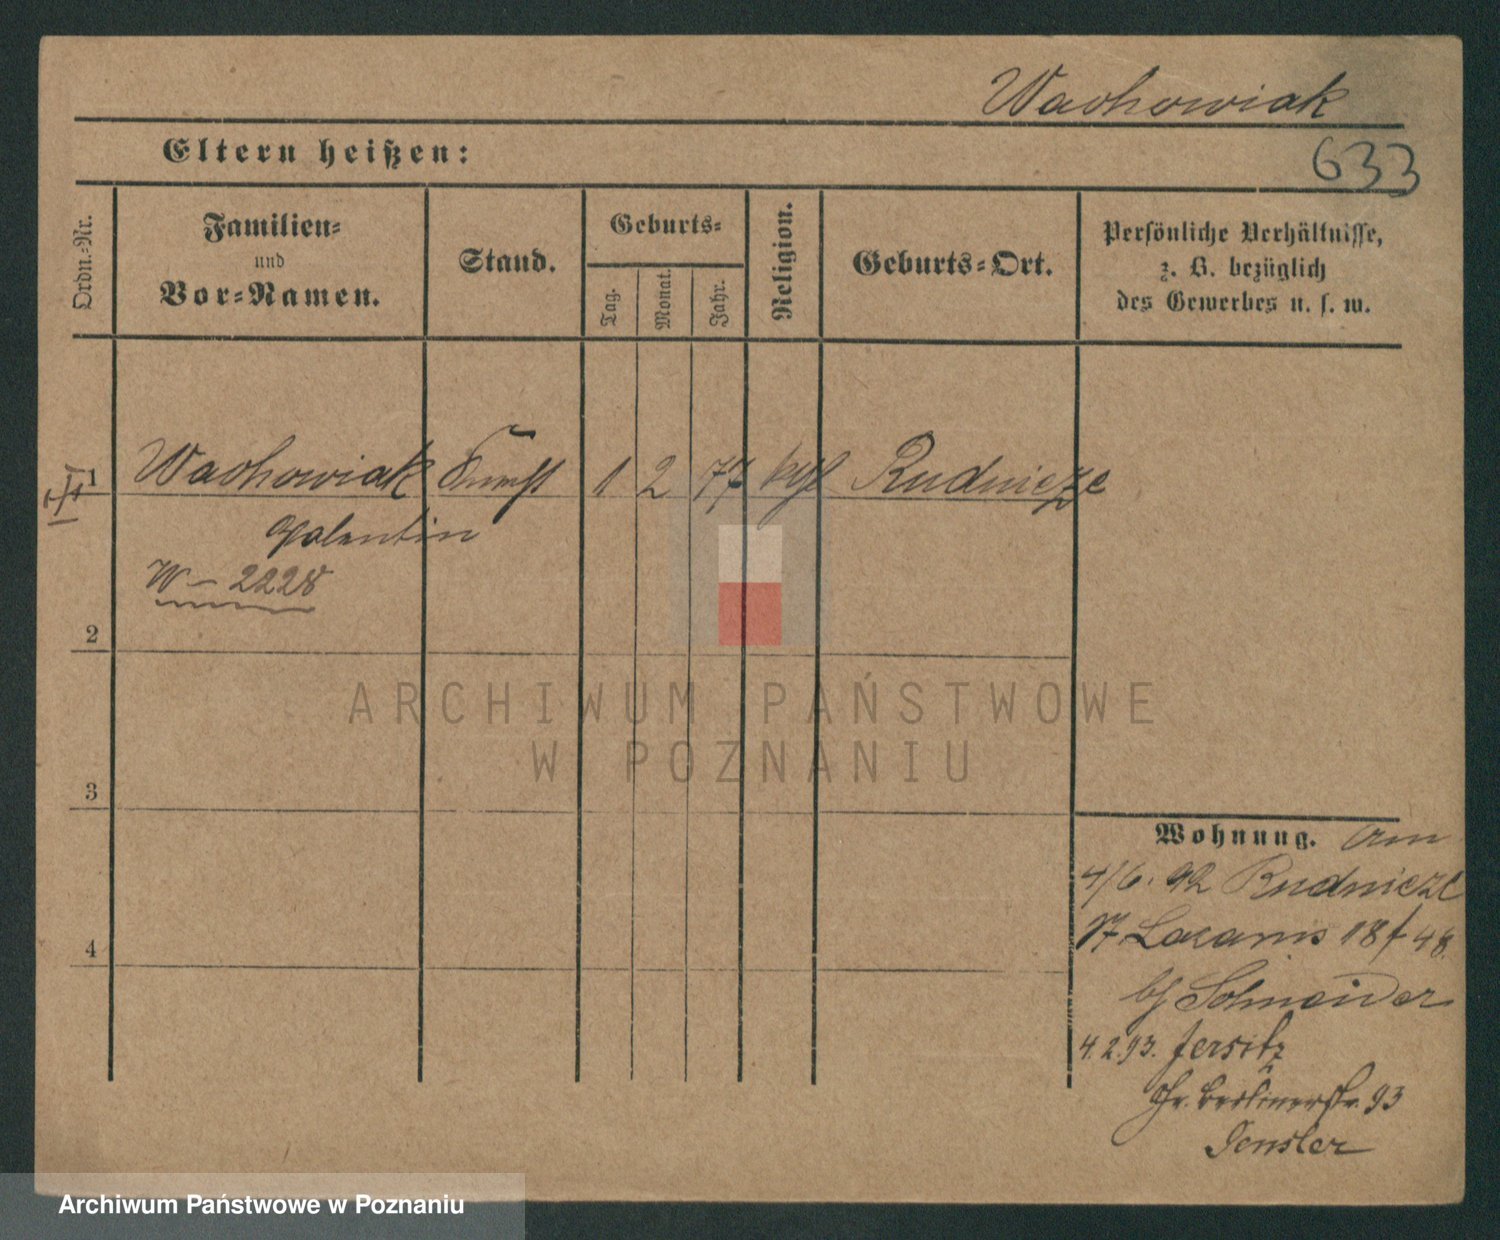 Wachowiak
Eltern heißen:
633
Ordn.-Nr.
Familien-
und
Vor-Namen.
Stand.
Geburts-
Tag.
Monat.
Jahr.
Religion.
Geburts-Ort.
Persönliche Verhältnisse,
z. B. bezüglich
des Gewerbes u. s. w.
1
Wachowiak
1 2 77 Rudnicze
Valentin
W - 2228
2
3
4
ARCHIWUM PAŃSTWOWE
W POZNANIU
Wohnung.
4/6. 92 Rudnicze
Lazarus 18
Schneider
4.2.93. Jersitz
Gr. Berlinerstr. 93
Archiwum Państwowe w Poznaniu